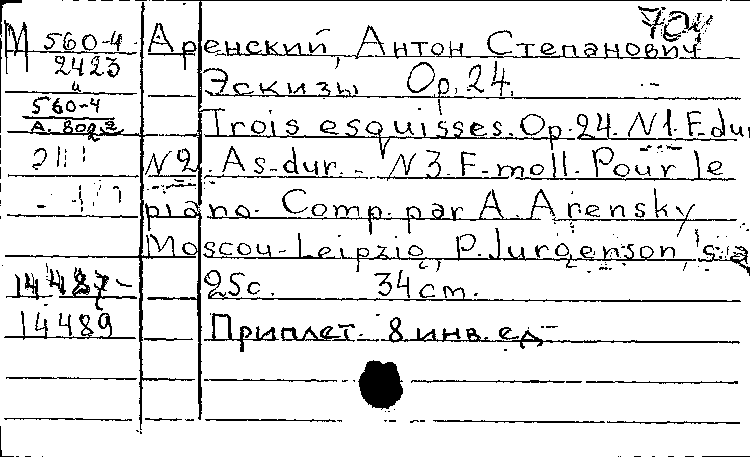 704
М 560-4 Аренский, Антон Степанович
2423 Эскизы Op. 24.
и
560-4
A. 802 Trois esquisses. Op. 24. N1. F-dur
N2. As-dur. - N3. F-moll. Pour le
piano. Comp. par A. Arensky
Moscou-Leipzig, P. Jurgenson, s.a
14487- 25 с. 34 cm.
14489 Приплет. 8 инв. ед.